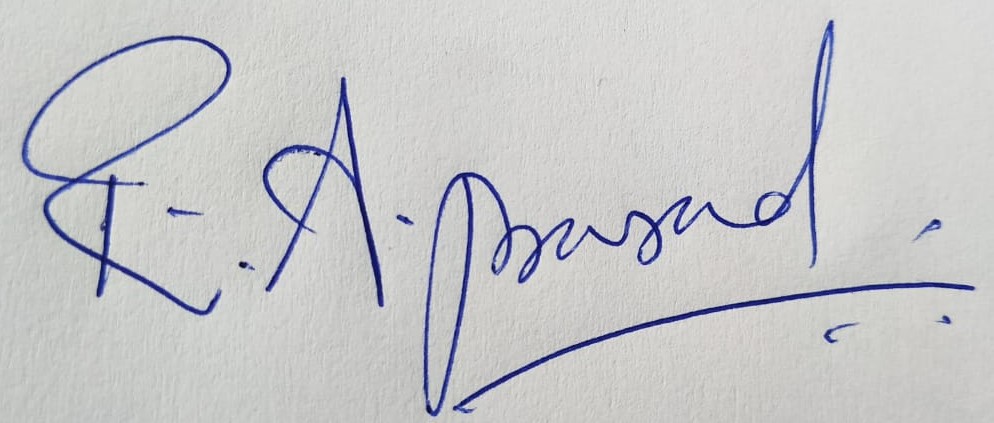 K. A. Prasad